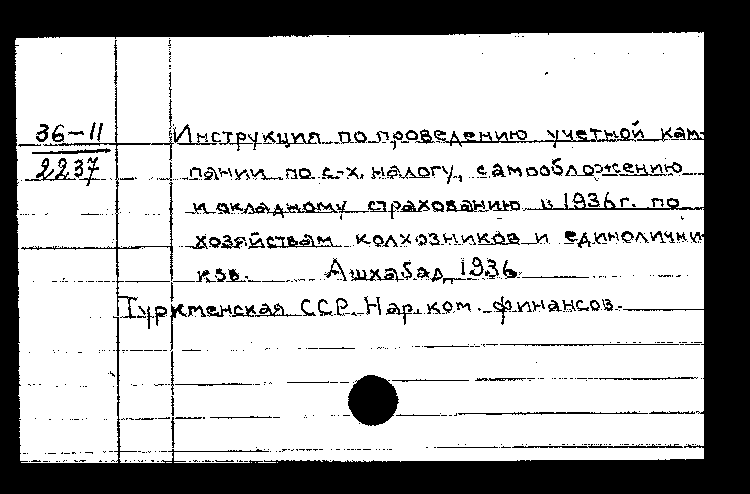 36-11
2237
Инструкция по проведению учетной кам-
пании по с-х. налогу, самообложению
и окладному страхованию в 1936 г. по
хозяйствам колхозников и единолични-
ков. Ашхабад, 1936
Туркменская ССР. Нар. ком. финансов.